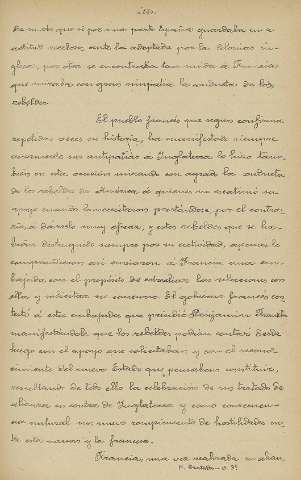 de modo que si por una parte España guardaba una
actitud neutra, ante la adoptada por la Colonias in-
glesas, por otra se encontraba tan unida a Francia
que miraba con gran simpatía la conducta de los
rebeldes.
El pueblo francés que segun confirma
repetidas veces su historia, ha manifestado siempre
sus antipatías a Inglaterra lo hizo tam-
bien en esta ocasión mirando con agrado la actitud
de los rebeldes de América á quienes no escatimó su
apoyo cuando lo necesitaron prestándose, por el contra-
rio, á dárselo muy eficaz, y estos rebeldes que se ha-
bían distinguido siempre por su actividad,
comprendieron así enviaron á Francia una em-
bajada, con el propósito de estrechar las relaciones con
ella y solicitar su concurso. El gobierno francés con-
testó á esta embajada que presidió Benjamin Franklin
manifestándole que los rebeldes podian contar desde
luego con el apoyo que solicitaban; y con el recono-
cimiento del nuevo Estado que pensaban constituir,
resultando de todo ello la celebración de un tratado de
alianza en contra de Inglaterra y como consecuen-
cia natural un nuevo rompimiento de hostilidades en-
tre esta nacion y la francesa.
Francia, una vez realizada su alian-